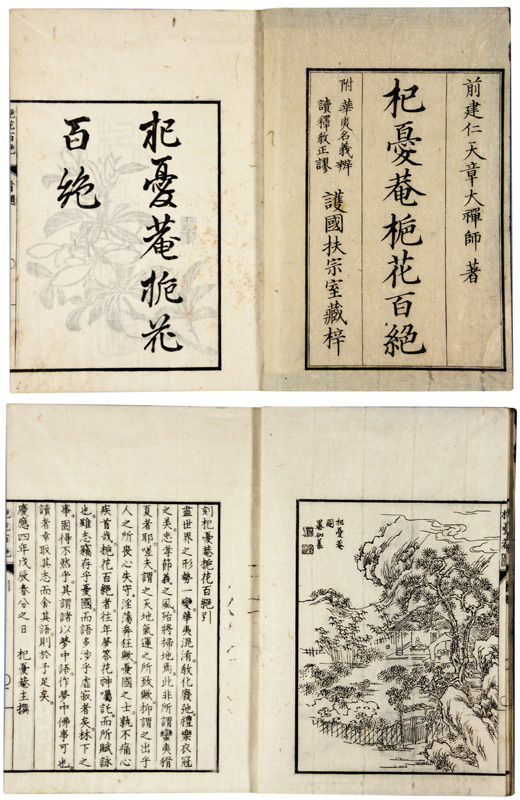 前建仁天章大禪師 著
杞憂菴梔花百絕
附 華夷名義辨
讀釋教正謬
護國扶宗室藏梓
杞憂菴梔花
百絶
杞憂菴
圖
刻杞憂菴梔花百絕引
盡世界之形勢一變華夷混淆教化廢弛禮樂衣冠
之美忠孝節義之風殆將掃地焉此非所謂蠻夷猾
夏者耶嗟夫謂之天地氣運之所致歟抑謂之出乎
人之所喪心失守淫蕩奔狂歟憂國之士孰不痛心
疾首哉梔花百絕者往年夢蒙花神囑託而所賦詠
也雖志竊存乎憂國而語多涉乎虛寂者矣林下之
事固得不然乎其謂諸以夢中語作夢中佛事可也
讀者幸取其志而舍其語則於予足矣
慶應四年戊辰春分之日 杞憂菴主撰